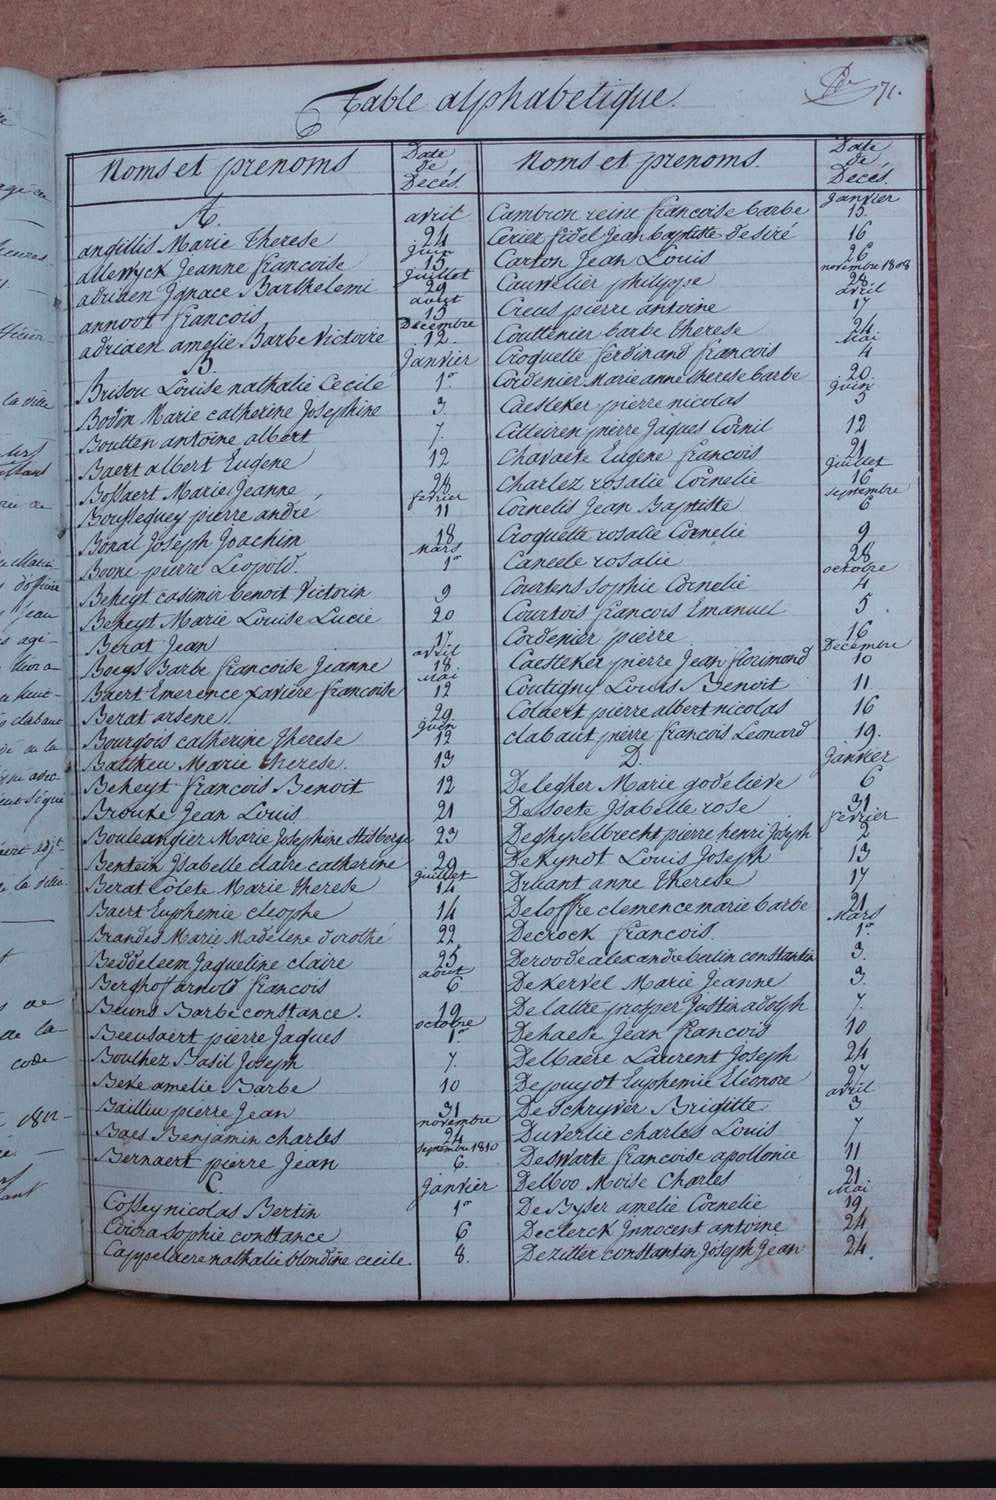 Table alphabetique.
71.
Noms et prenoms
Date de Décés.
A.
angillis Marie Therese avril 24
allewyck Jeanne francoise juin 15
adriaen Ignace Barthelemi juillet 29
annoot francois aout 15
adriaen amelie Barbe Victoire Decembre 12.
B.
Brisou Louise nathalie Cecile Janvier 1er
Bodon Marie catherine Josephine 3.
Boutten antoine albert 7.
Baert albert Eugene 12
Bossaert Marie Jeanne 28
pierre andré fevrier 11
Bonal Joseph Joachim 18
Boone pierre Leopold. mars 1er
Beheyt casimir benoit Victorin 9
Beheyt Marie Louise Lucie 20
Berat Jean 17
Boeys Barbe francoise Jeanne avril 18.
Baert Emerence xaviere francoise Mai 12
Berat arsene. 29
Bourgois catherine Therese juin 12
Battheu Marie therese. 13
Beheyt francois Benoit 12
Brouke Jean Louis 21
Bouleangier Marie Josephine 23
Bentein Ysabelle claire catherine 29
Berat Colete Marie therese juillet 14
Baert Euphemie cleophe 14
Brandes Marie Madelene dorothé 22
Beddeleem Jaqueline claire 25
Berghof arnold francois aout 6.
Beuns Barbe constance. 19
Beeusaert pierre Jaques octobre 1er
Boulhez Basil Joseph 7.
Beke amelie Barbe 10
Bailliu pierre Jean 31
Baes Benjamin charles novembre 24
Bernaert pierre Jean septembre 1810 6.
C.
Cossey nicolas Bertin Janvier 1er
Sophie constance 6
Cappelaere nathalie blondine cecile. 8.
Noms et prenoms.
Date de Décés.
Cambron reine francoise barbe Janvier 15.
Cerier fidel Jean baptiste desiré 16
Carton Jean Louis 26
Cauwelier philippe novembre 1808 28
Creus pierre antoine avril 17
Couttenier barbe therese 24
Croquette ferdinand francois Mai 4
Cordenier Marie anne therese barbe 20.
Caesteker pierre nicolas juin 5
pierre Jaques Cornil 12
Chavaete Eugene francois 21
Charlez rosalie Cornelie juillet 16
Cornelis Jean Baptiste septembre 6
Croquette rosalie Cornelie 9
Caneele rosalie 28
Courtens Sophie Cornelie octobre 4
Courtois francois Emanuel 5
Cordenier pierre 16
Caesteker pierre Jean florimond Decembre 10
Coutigny Louis Benoit 11
Colaert pierre albert nicolas 16
clabaut pierre francois Leonard 19.
D.
Delegher Marie godelieve Janvier 6
Desoete Ysabelle rose 31
Deghyselbrecht pierre henri Joseph fevrier 2
Dekyndt Louis Joseph 13
Druant anne Therese 17
Deloffre clemence marie barbe 21
Decrock francois. Mars 1er
Deroode alexandre batin constantin 3.
Dekervel Marie Jeanne 3.
Delattre prosper Justin adolph 7.
Dehaese Jean francois 10
Delbaere Laurent Joseph 24
Depuydt Euphemie Eleonore 27
De Schryver Brigitte avril 3
Duverlie charles Louis 7
Deswarte francoise apollonie 11
Delboo Moise Charles 21
De Byser amelie Cornelie Mai 19
Declerck Innocent antoine 24
Dezitter constantin Joseph Jean 24.